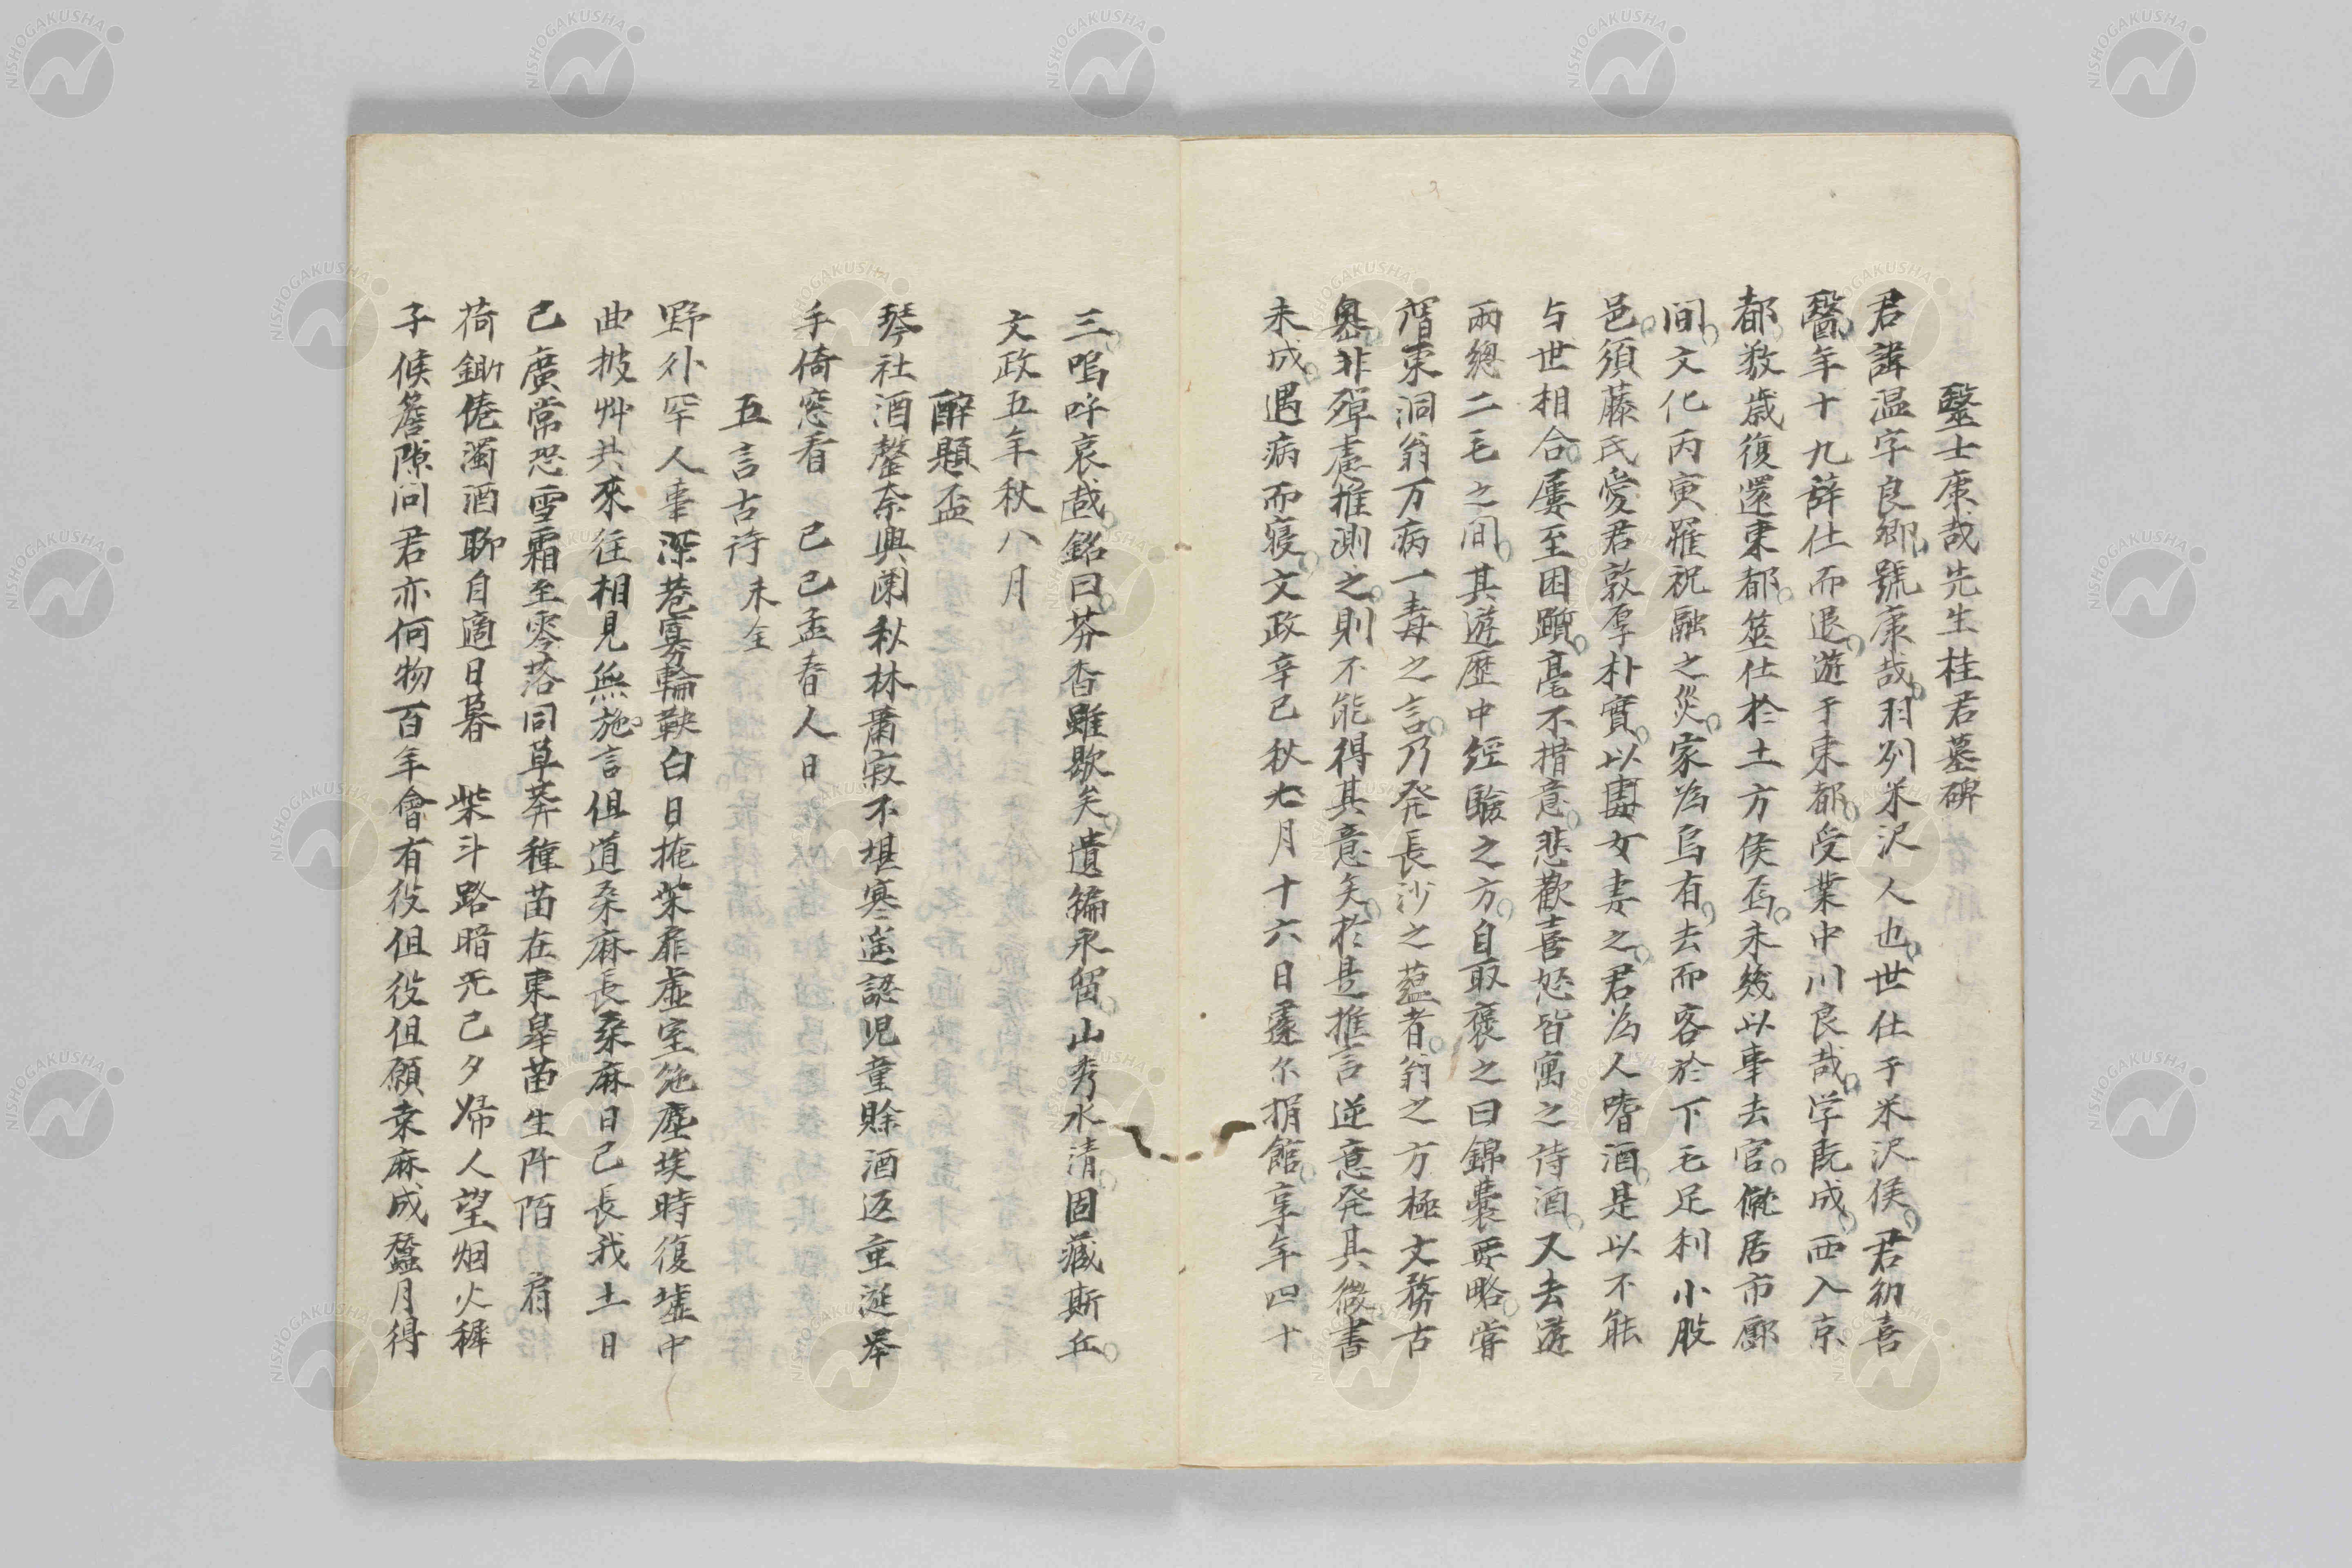 醫士康哉先生桂君墓碑
君諱温字良卿。號康哉。羽列米沢人也。世仕于米沢侯。君幼喜
醫。年十九辞仕而退。遊于東都。受業中川良哉。学既成。西入京
都。数歳復還東都。筮仕於土方侯焉。未幾以事去官。僦居市郭
间。文化丙寅罹祝融之災。家為烏有。去而客於下毛足利小股
邑。須藤氏愛君敦厚朴實。以女妻之。君為人嗜酒。是以不能
与世相合。屢至困躓。毫不措意。悲歡喜怒皆寓之诗酒。又去遊
兩總二毛之间。其遊歴中經驗之方。自取褒之曰錦囊要略。嘗
習東洞翁万病一毒之言。乃発長沙之蘊者。翁之方極文務古
奥。非殫慮推測之。則不能得其意矣。於是推言逆意発其微書
未成。遇病而寝。文政辛巳秋七月十六日遽尔捐館。享年四十
三。嗚呼哀哉。銘曰。芬香雖歇矣。遺編永留。山秀水清。固藏斯丘。
文政五年秋八月
醉題盃
琴社酒罄奈興闌秋林肅寂不堪寒遥認児童賖酒返重涎举
手倚窓看 己巳孟春人日
五言古诗 未全
野外罕人事深巷寡輪鞅白日掩柴扉虚室绝塵埃時復墟中
曲披艸共來往相見無施言但道桑麻長桑麻日己長我土日
己廣常恐雪霜至零落同草莽種苗在東皐苗生阡陌 肩
荷鋤倦濁酒聊自適日暮 柴斗路暗旡己夕帰人望烟火稺
子候簷隙问君亦何物百年會有役但役但願桒麻成蠶月得